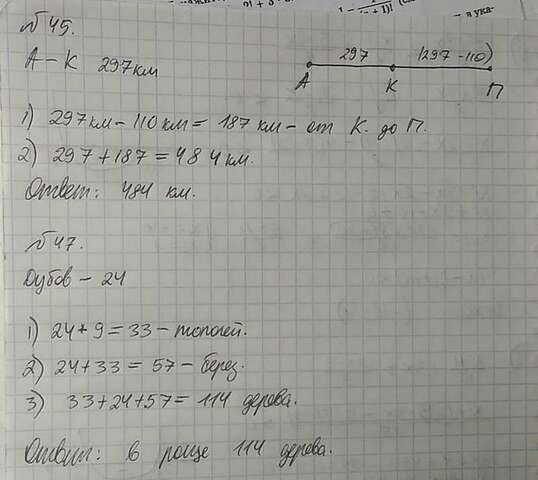 №45.
А – К 297км
297 (297 - 110)
А К П
1) 297км – 110км = 187 км – от К. до П.
2) 297 + 187 = 484 км.
Ответ: 484 км.
№47.
Дубов – 24
1) 24 + 9 = 33 – тополей.
2) 24 + 33 = 57 – берез.
3) 33 + 24 + 57 = 114 дерева.
Ответ: в роще 114 дерева.